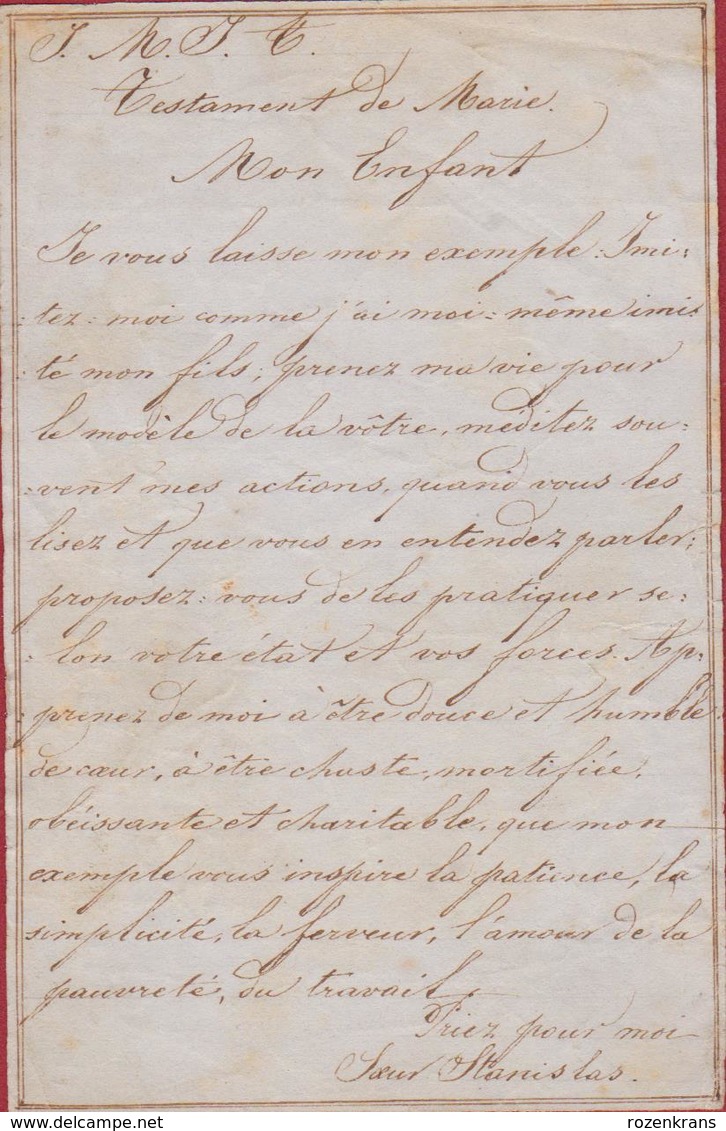 J. M. J. T.
Testament de Marie.
Mon Enfant
Je vous laisse mon exemple: Imi-
tez-moi comme j'ai moi-même imi-
té mon fils; prenez ma vie pour
le modèle de la vôtre, méditez sou-
vent mes actions, quand vous les
lisez et que vous en entendez parler;
proposez-vous de les pratiquer se-
lon votre état et vos forces. Ap-
prenez de moi à être douce et humble
de cœur, à être chaste, mortifiée,
obéissante et charitable, que mon
exemple vous inspire la patience, la
simplicité, la ferveur, l'amour de la
pauvreté, du travail.
Priez pour moi
Sœur Stanislas.
delcampe.net
rozenkrans